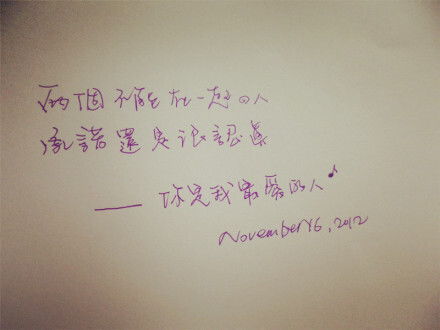 兩個不能在一起的人
承諾還是很認真
——你是我最愛的人♪
November 16, 2012